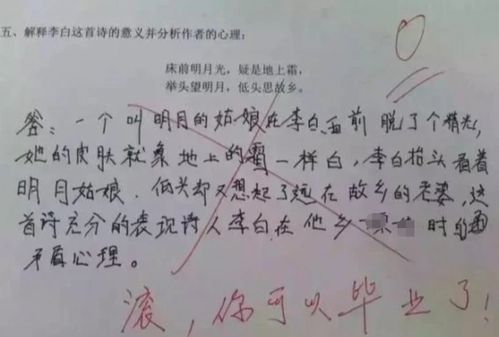 五、解释李白这首诗的意义并分析作者的心理：
床前明月光，疑是地上霜，
举头望明月，低头思故乡。
0
答：一个叫明月的姑娘在李白面前脱了个精光，
她的皮肤就象地上的霜一样白，李白抬头看着
明月姑娘，低头却又想起了远在故乡的老婆，这
首诗充分的表现诗人李白在他乡 时的
矛盾心理。
滚，你可以毕业了！